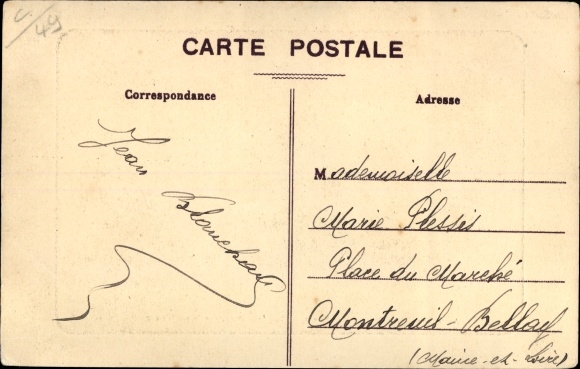 c/49
CARTE POSTALE
Correspondance
Adresse
Jean
Blanchard
Mademoiselle
Marie Plessis
Place du Marché
Montreuil-Bellay
(Maine-et-Loire)